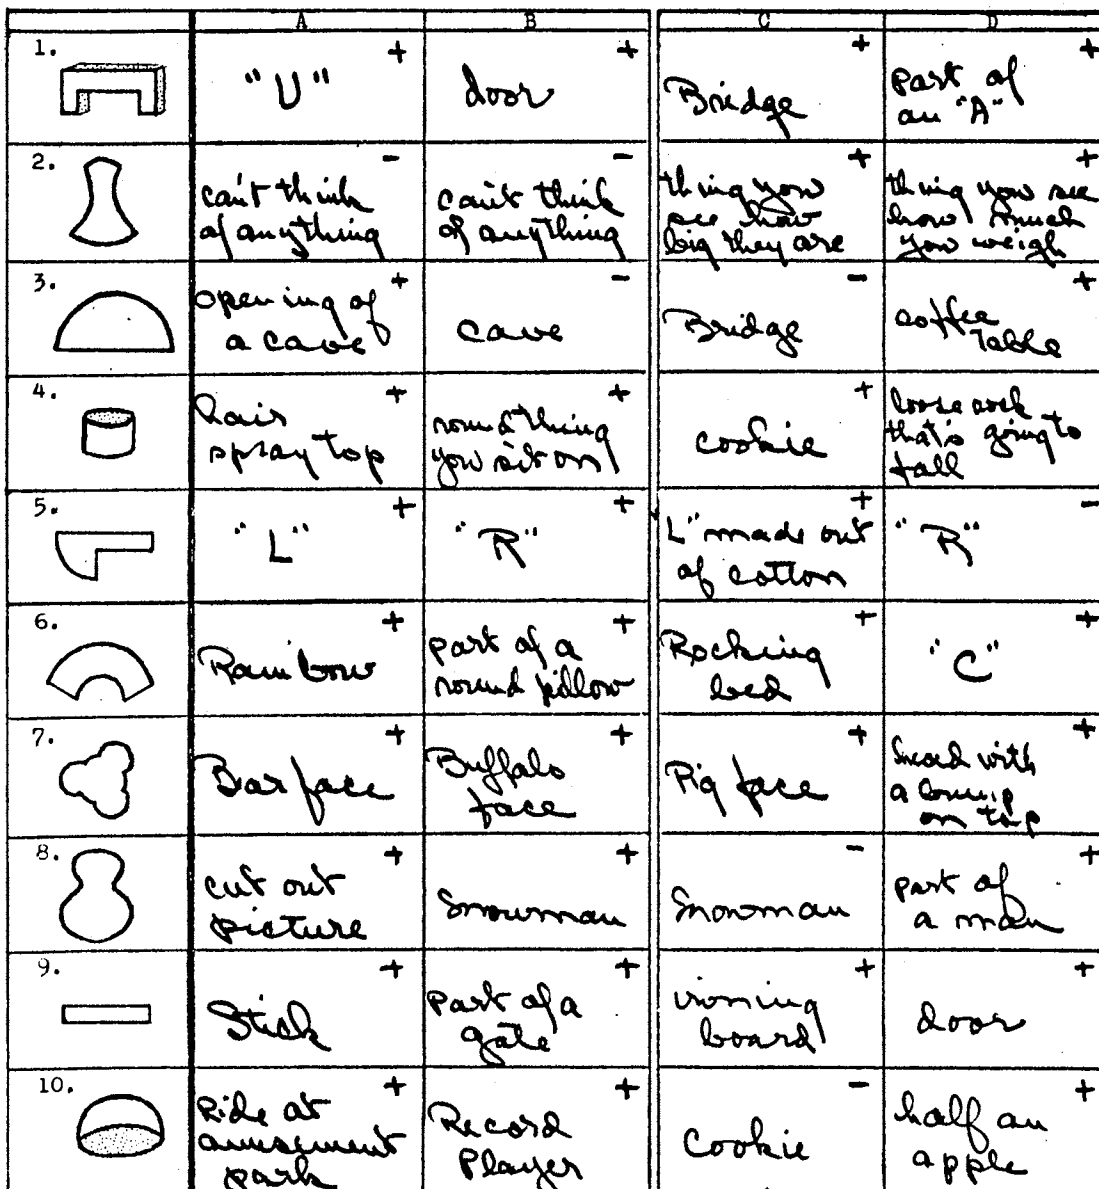 A B C D
1. "U" + door + Bridge + part of
an "A" +
2. can't think
of anything - can't think
of anything - thing you
see how
big they are + thing you see
how much
you weigh +
3. opening of
a cave + cave - Bridge - coffee
table +
4. hair
spray top + round thing
you sit on + cookie + loose sock
that's going to
fall
5. "L" + "R" + L" made out
of cotton + "R" -
6. Rainbow + part of a
round pillow + Rocking
bed + "C" +
7. Bear face + Buffalo
face + Pig face + head with
a bump
on top +
8. cut out
picture + Snowman + Snowman - part of
a man +
9. Stick + part of a
gate + ironing
board + door +
10. Ride at
amusement
park + Record
Player + Cookie - half an
apple +